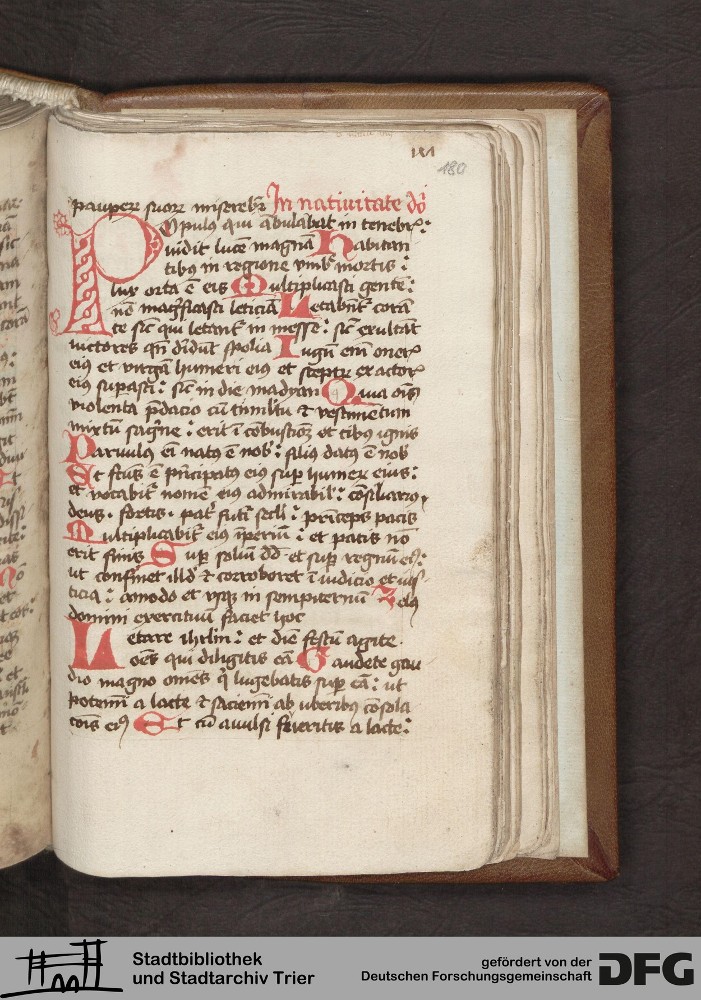 181
180
pauperū suorū miserebīt In nativitate dn̄i
Opulus qui ambulabat in tenebris :
vidit lucē magnā Habitan
tibus in regione vmbrē mortis :
lux orta ē eis Multiplicasti gentē :
nō magnificasti leticiā Letabūt corā
te sic̄ qui letant in messe : sic̄ exultāt
victores qn̄ diuidūt spolia Iugū eni oneris
eius et virgā humeri eius et sceptrū exactoris
eius supasti : sic̄ in die madyan Quia oīs
violenta p̄dacio cū tumltu et vestimetum
mixtū sagne : erit ī cōbustionē et cibus ignis
Parvulus eī natus ē nob : filius datus ē nob
Et fctūs ē principatus eius sup humerū eius :
et vocabit nomē eius admirabil : cōsiliarius
deus . fortis . pat futi sclī : princeps pacis
Multiplicabit eius īperiū : et pacis nō
erit finis Sup soliū dd et sup regnū eī :
ut confirmet illd et corroboret ī iudicio et ius
ticia : amodo et vsque in sempiternū Zelus
domini exercituū faciet hoc
Letare ihrlm : et diē festū agite .
oēs qui diligitis eā Gaudete gau
dio magno omēs q lugebatis sup eā : ut
potemī a lacte et saciemī ab uberibus cōsola
cōis eius Et cū avulsi fueritis a lacte :
Stadtbibliothek
und Stadtarchiv Trier
gefördert von der
Deutschen Forschungsgemeinschaft DFG